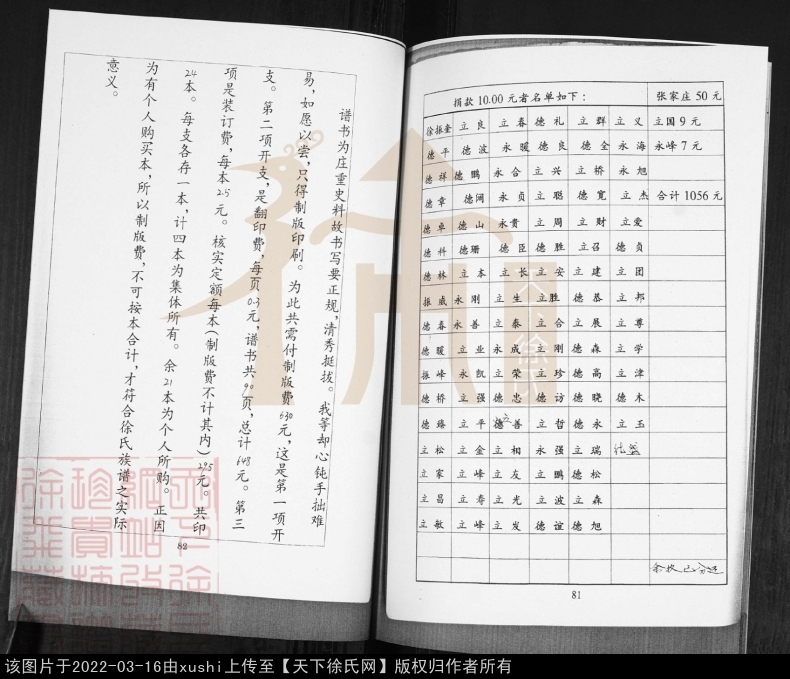 捐款 10.00 元者名单如下： 张家庄 50 元
徐振奎 立良 立春 德礼 立群 立义 立国 9 元
德平 德波 永暖 德良 德全 永海 永峰 7 元
德祥 德鹏 永合 立兴 立桥 永旭
德章 德阔 永贞 立聪 德宽 立杰 合计 1056 元
德卓 德山 永贵 立周 立财 立爱
德科 德珊 德臣 德胜 立召 德贞
德林 立本 立长 立安 立建 立团
振威 永刚 立生 立胜 德基 立邦
德春 永善 立泰 立合 立展 立尊
德暖 立业 永成 立刚 德森 立学
振峰 永凯 立荣 立珍 德高 立津
德桥 立强 德忠 德访 德晓 德木
德臻 立平 德善 立哲 德永 立玉
立
立松 立金 立相 永强 立瑞
立家 立峰 立友 立鹏 德松
立昌 立寿 立光 立波 立森
立敏 立峰 立发 德谊 德旭
81
谱书为庄重史料故书写要正规，清秀挺拔。我等却心钝手拙难
易，如愿以尝，只得制版印刷。为此共需付制版费630元，这是第一项开
支。第二项开支，是翻印费，每页0.3元，谱书共90页，总计648元。第三
项是装订费，每本2.5元。核实定额每本(制版费不计其内)29.5元。共印
24本。每支各存一本，计四本为集体所有。余21本为个人所购。正因
为有个人购买本，所以制版费，不可按本合计，才符合徐氏族谱之实际
意义。
82
该图片于2022-03-16由xushi上传至【天下徐氏网】版权归作者所有